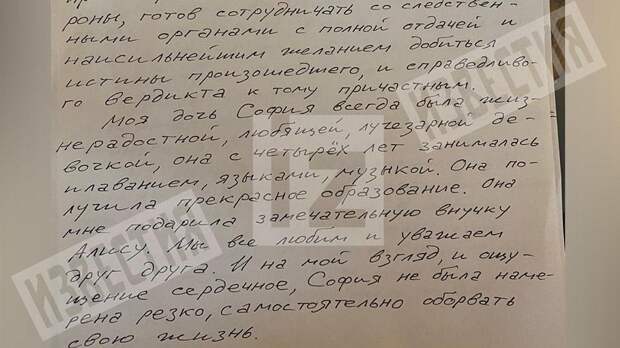 роны, готов сотрудничать со следствен-
ными органами с полной отдачей и
наисильнейшим желанием добиться
истины произошедшего, и справедливо-
го вердикта к тому причастным.
Моя дочь София всегда была жиз-
нерадостной, любящей, лучезарной де-
вочкой, она с четырёх лет занималась
плаванием, языками, музыкой. Она по-
лучила прекрасное образование. Она
мне подарила замечательную внучку
Алису. Мы все любим и уважаем
друг друга. И на мой взгляд, и ощу-
щение сердечное, София не была наме-
рена резко, самостоятельно оборвать
свою жизнь.
ИЗВЕСТИЯ
IZ
ИЗВЕСТИЯ